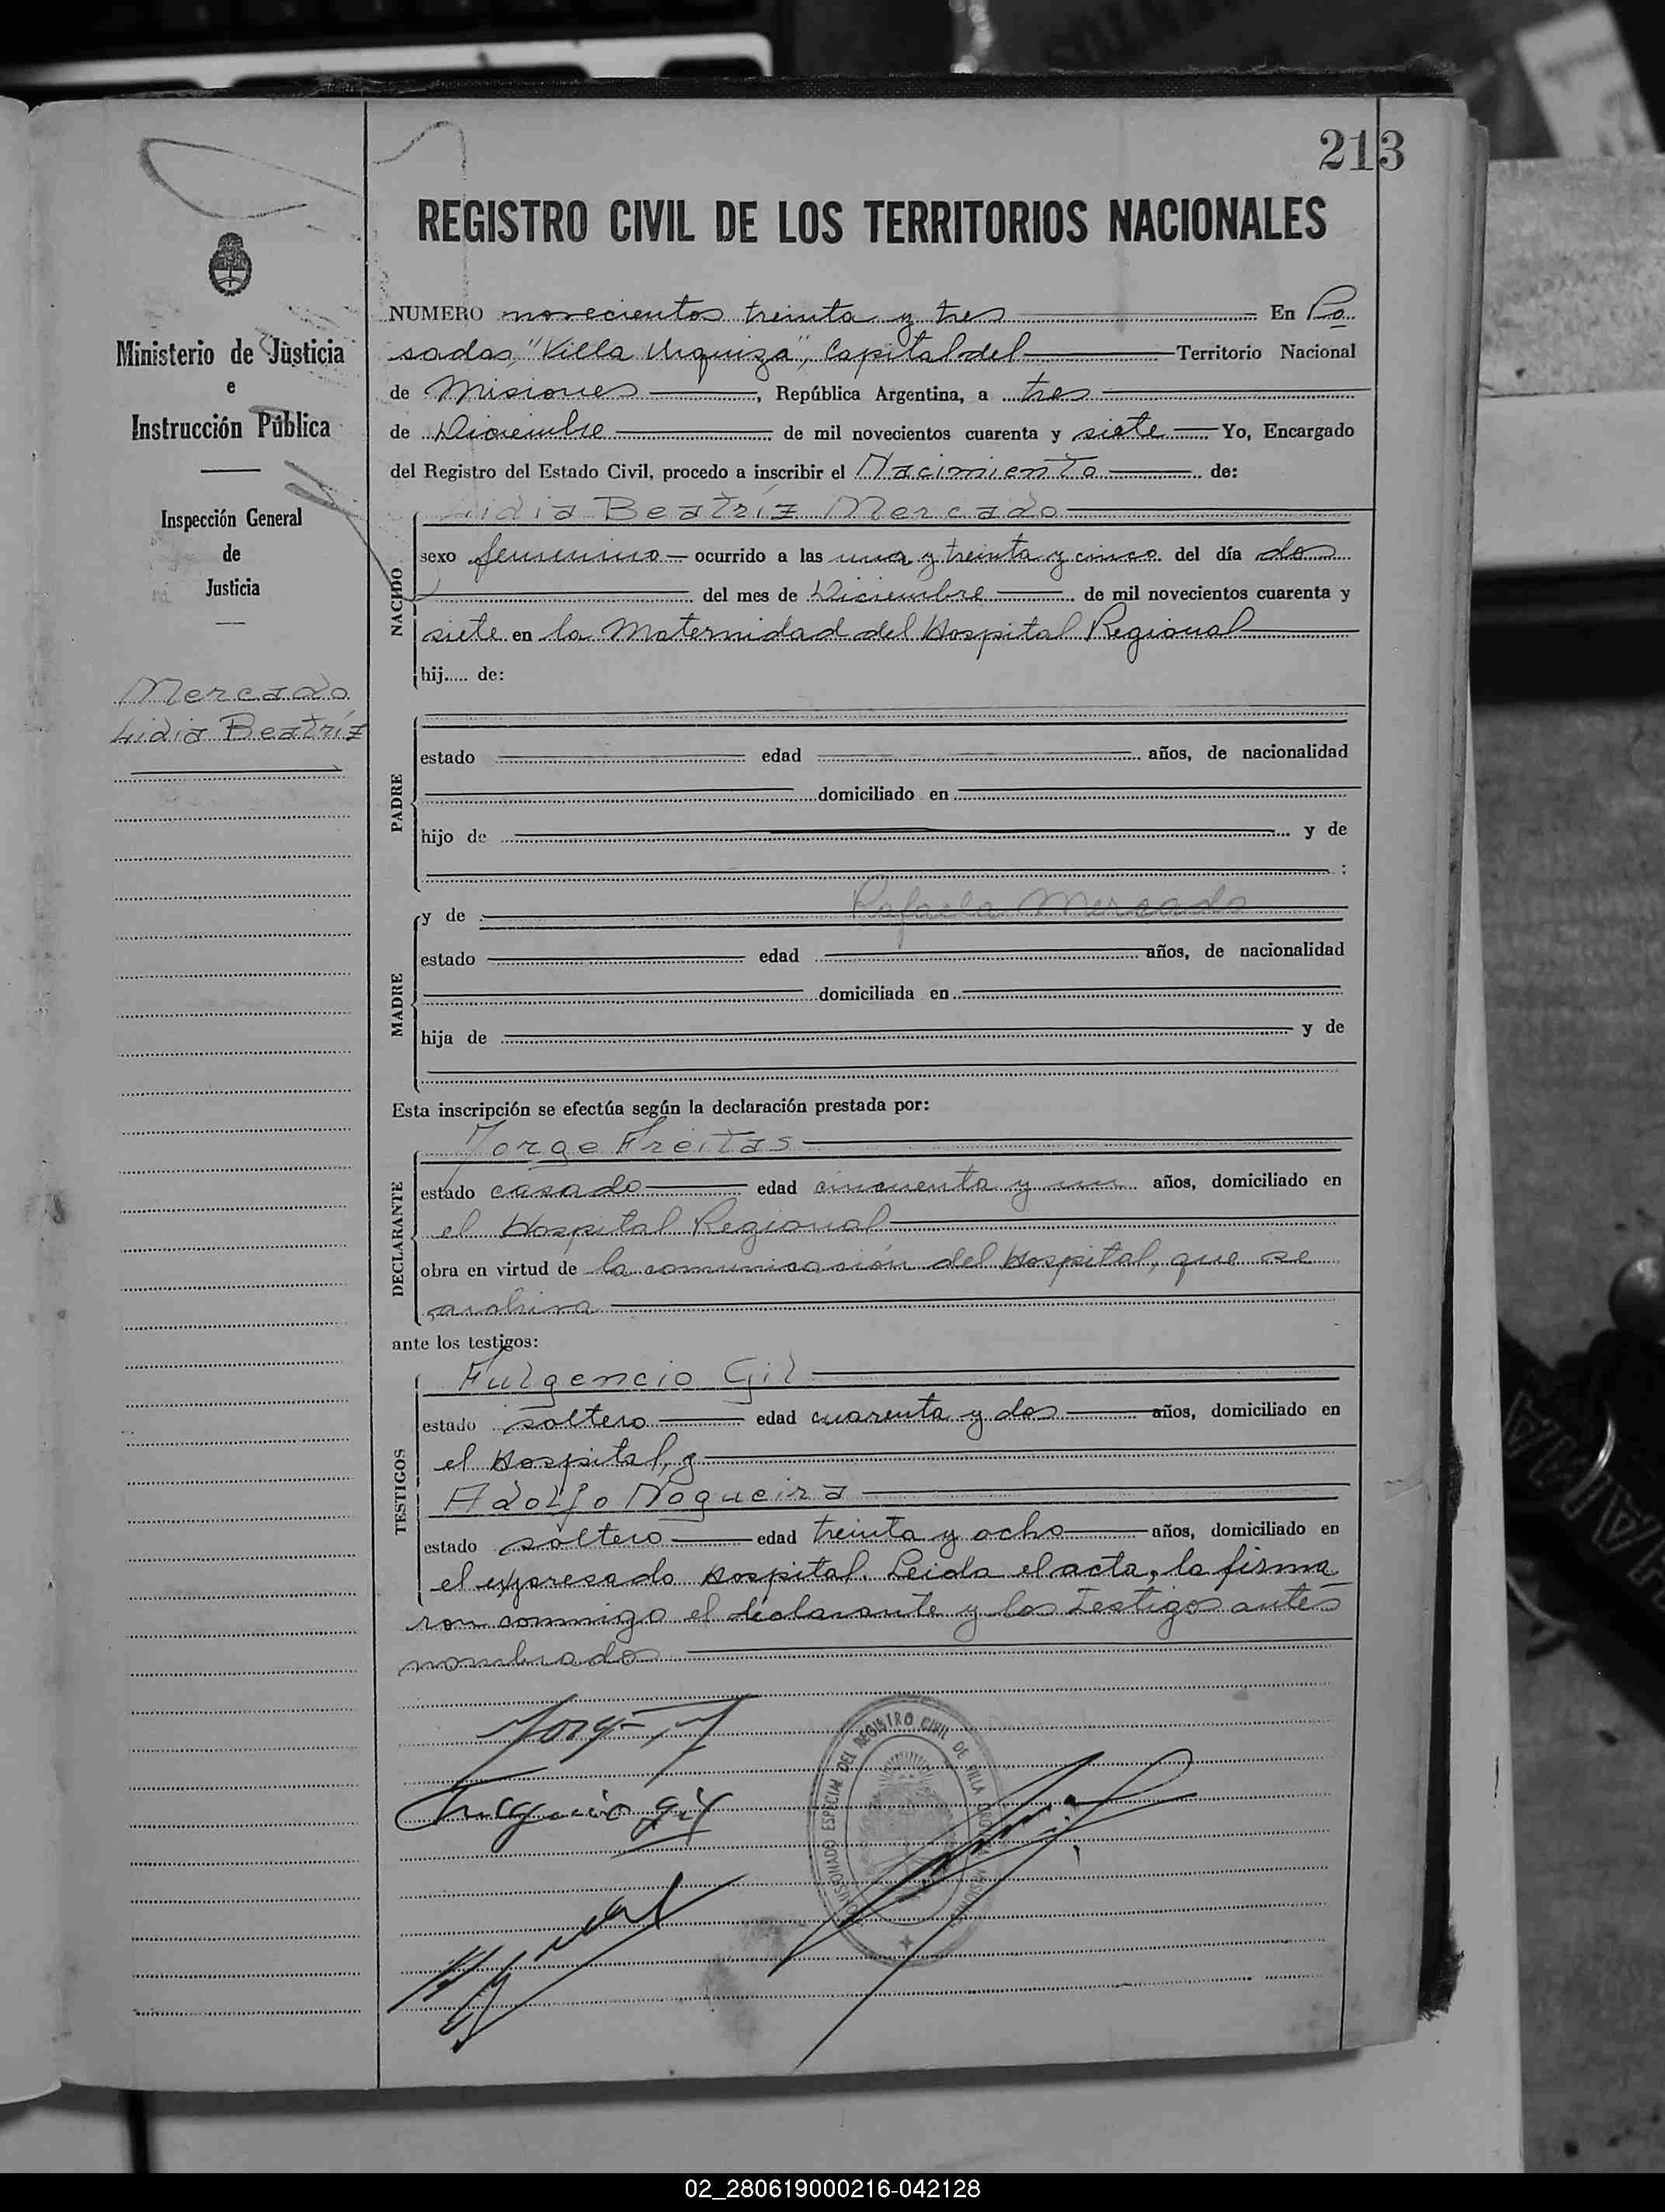 213
REGISTRO CIVIL DE LOS TERRITORIOS NACIONALES
Ministerio de Justicia
e
Instrucción Pública
Inspección General
de
Justicia
Mercado
Lidia Beatríz
NUMERO novecientos treinta y tres En Po
sadas, "Villa Urquiza", Capital del Territorio Nacional
de Misiones, República Argentina, a tres
de Diciembre de mil novecientos cuarenta y siete Yo, Encargado
del Registro del Estado Civil, procedo a inscribir el Nacimiento de:
NACIDO
Lidia Beatríz Mercado
sexo femenino ocurrido a las una y treinta y cinco del día dos
del mes de Diciembre de mil novecientos cuarenta y
siete en la Maternidad del Hospital Regional
hij..... de:
PADRE
estado edad años, de nacionalidad
domiciliado en
hijo de y de
:
MADRE
y de Rafaela Mercado
estado edad años, de nacionalidad
domiciliada en
hija de y de
Esta inscripción se efectúa según la declaración prestada por:
DECLARANTE
Jorge Freitas
estado casado edad cincuenta y un años, domiciliado en
el Hospital Regional
obra en virtud de la comunicación del Hospital, que se
archiva
ante los testigos:
TESTIGOS
Fulgencio Gil
estado soltero edad cuarenta y dos años, domiciliado en
el Hospital, y
Adolfo Nogueira
estado soltero edad treinta y ocho años, domiciliado en
el expresado Hospital. Leida el acta, la firma
ron conmigo el declarante y los Testigos antes
nombrados
Fulgencio Gil
COMISIONADO ESPECIAL DEL REGISTRO CIVIL DE VILLA URQUIZA MISIONES
02_280619000216-042128